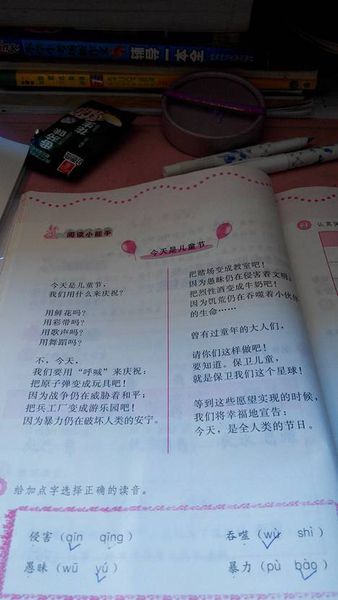 一本全
阅读小能手
今天是儿童节
今天是儿童节，
我们用什么来庆祝？
用鲜花吗？
用彩带吗？
用歌声吗？
用舞蹈吗？
不，今天，
我们要用“呼喊”来庆祝：
把原子弹变成玩具吧！
因为战争仍在威胁着和平；
把兵工厂变成游乐园吧！
因为暴力仍在破坏人类的安宁。
把赌场变成教室吧！
因为愚昧仍在侵害着文明；
把烈性酒变成牛奶吧！
因为饥荒仍在吞噬着小伙伴
的生命……
曾有过童年的大人们，
请你们这样做吧！
要知道，保卫儿童，
就是保卫我们这个星球！
等到这些愿望实现的时候，
我们将幸福地宣告：
今天，是全人类的节日。
给加点字选择正确的读音。
侵害（qīn qīng） 吞噬（wù shì）
愚昧（wū yú） 暴力（pù bào）